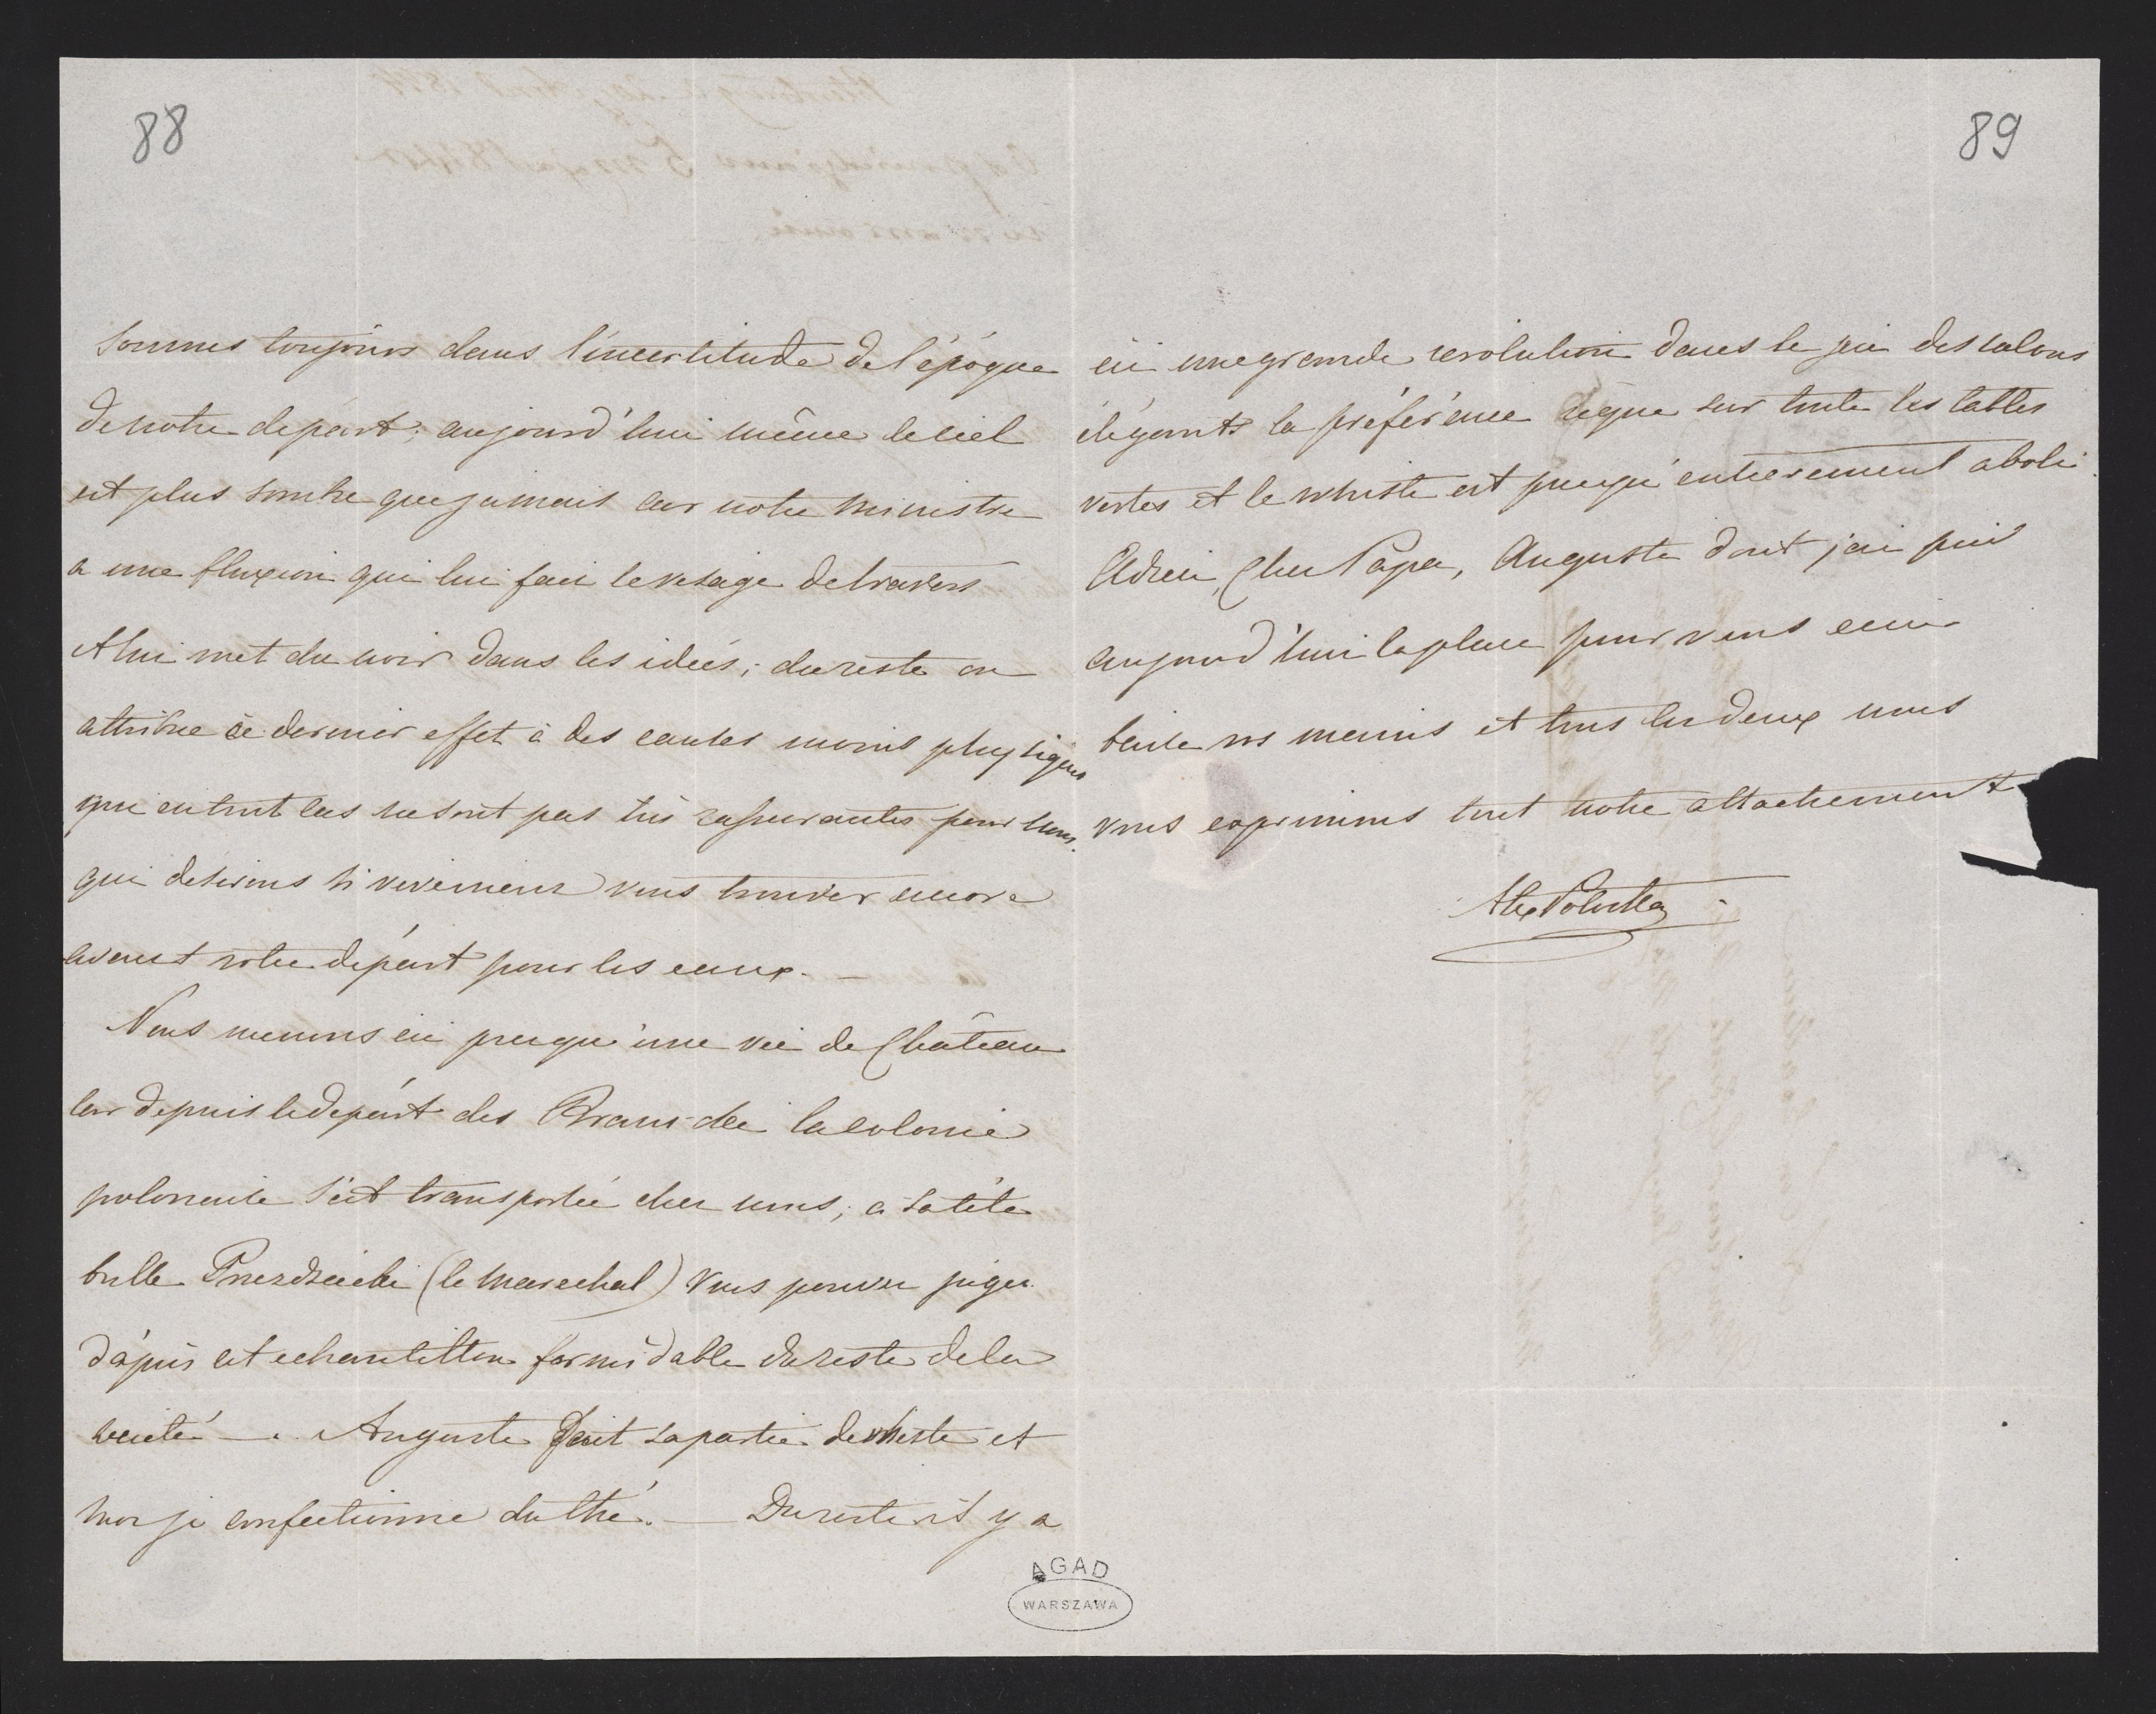 88
sommes toujours dans l'incertitude de l'époque
de notre départ; aujourd'hui même le ciel
est plus sombre que jamais car notre ministre
a une fluxion qui lui fait le visage de travers
et lui met du noir dans les idées; du reste on
attribue ce dernier effet à des causes moins physiques
qui en tout cas ne sont pas très rassurantes pour nous
qui desirons si vivement vous trouver encore
avant votre départ pour les eaux. —
Nous menons ici presqu'une vie de Château
car depuis le depart des Branicki la colonie
polonaise s'est transportée chez nous; a sa tête
brille Przezdziecki (le marechal) Vous pouvez juger
d'après cet echantillon formidable du reste de la
société —. Auguste fait sa partie de whiste et
moi je confectionne du thé. — Du reste il y a
89
ici une grande revolution dans le jeu des salons
élégants la préférence règne sur toute les tables
vertes et le whiste est presqu'entierement aboli.
Adieu, Cher Papa, Auguste dont j'ai pris
aujourd'hui la place pour vous ecrire
baise vos mains et tous les deux nous
vous exprimons tout notre attachement
Alex Potocka
AGAD
WARSZAWA